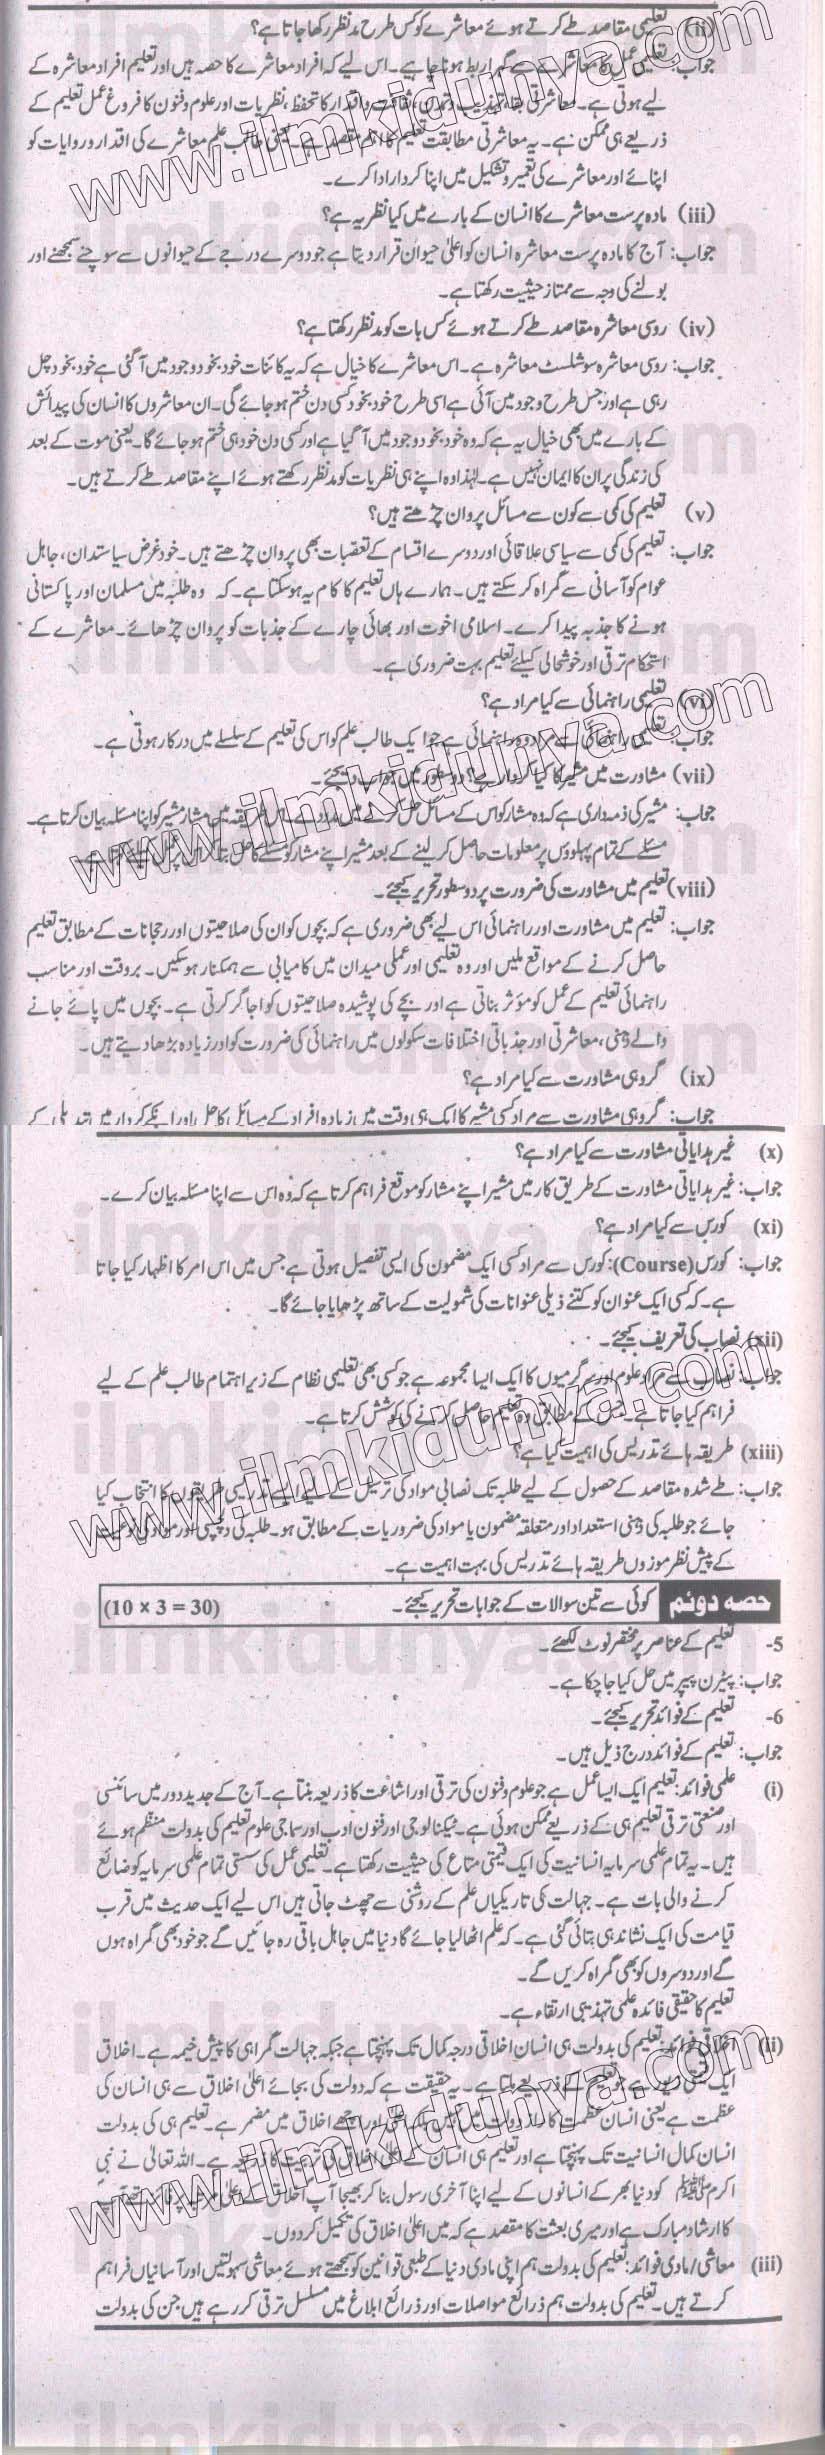 (ii) تعلیمی مقاصد طے کرتے ہوئے معاشرے کو کس طرح مدنظر رکھا جاتا ہے؟
جواب: تعلیمی عمل کا معاشرے سے گہرا ربط ہونا چاہیے۔ اس لیے کہ افراد معاشرے کا حصہ ہیں اور تعلیم افراد معاشرہ کے
لیے ہوتی ہے۔ معاشرتی بقا، تہذیب و تمدن، ثقافت و اقدار کا تحفظ، نظریات اور علوم و فنون کا فروغ عمل تعلیم کے
ذریعے ہی ممکن ہے۔ یہ معاشرتی مطابقت تعلیم کا اہم مقصد ہے۔ یعنی طالب علم معاشرے کی اقدار و روایات کو
اپنائے اور معاشرے کی تعمیر و تشکیل میں اپنا کردار ادا کرے۔
(iii) مادہ پرست معاشرے کا انسان کے بارے میں کیا نظریہ ہے؟
جواب: آج کا مادہ پرست معاشرہ انسان کو اعلیٰ حیوان قرار دیتا ہے جو دوسرے درجے کے حیوانوں سے سوچنے سمجھنے اور
بولنے کی وجہ سے ممتاز حیثیت رکھتا ہے۔
(iv) روسی معاشرہ مقاصد طے کرتے ہوئے کس بات کو مدنظر رکھتا ہے؟
جواب: روسی معاشرہ سوشلسٹ معاشرہ ہے۔ اس معاشرے کا خیال ہے کہ یہ کائنات خود بخود وجود میں آ گئی ہے خود بخود چل
رہی ہے اور جس طرح وجود میں آئی ہے اسی طرح خود بخود کسی دن ختم ہو جائے گی۔ ان معاشروں کا انسان کی پیدائش
کے بارے میں بھی خیال یہ ہے کہ وہ خود بخود وجود میں آ گیا ہے اور کسی دن خود ہی ختم ہو جائے گا۔ یعنی موت کے بعد
کی زندگی پر ان کا ایمان نہیں ہے۔ لہٰذا وہ اپنے ہی نظریات کو مدنظر رکھتے ہوئے اپنے مقاصد طے کرتے ہیں۔
(v) تعلیم کی کمی سے کون سے مسائل پروان چڑھتے ہیں؟
جواب: تعلیم کی کمی سے سیاسی علاقائی اور دوسرے اقسام کے تعصبات بھی پروان چڑھتے ہیں۔ خود غرض سیاستدان، جاہل
عوام کو آسانی سے گمراہ کر سکتے ہیں۔ ہمارے ہاں تعلیم کا کام یہ ہو سکتا ہے۔ کہ وہ طلبہ میں مسلمان اور پاکستانی
ہونے کا جذبہ پیدا کرے۔ اسلامی اخوت اور بھائی چارے کے جذبات کو پروان چڑھائے۔ معاشرے کے
استحکام ترقی اور خوشحالی کیلئے تعلیم بہت ضروری ہے۔
(vi) تعلیمی راہنمائی سے کیا مراد ہے؟
جواب: تعلیمی راہنمائی سے مراد وہ راہنمائی ہے جو ایک طالب علم کو اس کی تعلیم کے سلسلے میں درکار ہوتی ہے۔
(vii) مشاورت میں مشیر کا کیا کردار ہے؟ دو سطور میں جواب دیجئے۔
جواب: مشیر کی ذمہ داری ہے کہ وہ مشار کو اس کے مسائل حل کرنے میں مدد دے۔ اس طریقہ میں مشار مشیر کو اپنا مسئلہ بیان کرتا ہے۔
مسئلے کے تمام پہلوؤں پر معلومات حاصل کر لینے کے بعد مشیر اپنے مشار کو مسئلے کا حل بتا
(viii) تعلیم میں مشاورت کی ضرورت پر دو سطور تحریر کیجئے۔
جواب: تعلیم میں مشاورت اور راہنمائی اس لیے بھی ضروری ہے کہ بچوں کو ان کی صلاحیتوں اور رجحانات کے مطابق تعلیم
حاصل کرنے کے مواقع ملیں اور وہ تعلیمی اور عملی میدان میں کامیابی سے ہمکنار ہو سکیں۔ بروقت اور مناسب
راہنمائی تعلیم کے عمل کو مؤثر بناتی ہے اور بچے کی پوشیدہ صلاحیتوں کو اجاگر کرتی ہے۔ بچوں میں پائے جانے
والے ذہنی، معاشرتی اور جذباتی اختلافات سکولوں میں راہنمائی کی ضرورت کو اور زیادہ بڑھا دیتے ہیں۔
(ix) گروہی مشاورت سے کیا مراد ہے؟
جواب: گروہی مشاورت سے مراد کسی مشیر کا ایک ہی وقت میں زیادہ افراد کے مسائل کا حل اور انکے کردار میں تبدیلی کے
(x) غیر ہدایاتی مشاورت سے کیا مراد ہے؟
جواب: غیر ہدایاتی مشاورت کے طریق کار میں مشیر اپنے مشار کو موقع فراہم کرتا ہے کہ وہ اس سے اپنا مسئلہ بیان کرے۔
(xi) کورس سے کیا مراد ہے؟
جواب: کورس (Course): کورس سے مراد کسی ایک مضمون کی ایسی تفصیل ہوتی ہے جس میں اس امر کا اظہار کیا جاتا
ہے۔ کہ کسی ایک عنوان کو کتنے ذیلی عنوانات کی شمولیت کے ساتھ پڑھایا جائے گا۔
(xii) نصاب کی تعریف کیجئے۔
جواب: نصاب سے مراد علوم اور سرگرمیوں کا ایک ایسا مجموعہ ہے جو کسی بھی تعلیمی نظام کے زیر اہتمام طالب علم کے لیے
فراہم کیا جاتا ہے۔ جس کے مطابق وہ تعلیم حاصل کرنے کی کوشش کرتا ہے۔
(xiii) طریقہ ہائے تدریس کی اہمیت کیا ہے؟
جواب: طے شدہ مقاصد کے حصول کے لیے طلبہ تک نصابی مواد کی ترسیل کے لیے ایسے تدریسی طریقوں کا انتخاب کیا
جائے جو طلبہ کی ذہنی استعداد اور متعلقہ مضمون یا مواد کی ضروریات کے مطابق ہو۔ طلبہ کی دلچسپی اور مواد کی نوعیت
کے پیش نظر موزوں طریقہ ہائے تدریس کی بہت اہمیت ہے۔
حصہ دوئم کوئی سے تین سوالات کے جوابات تحریر کیجئے۔ (10 × 3 = 30)
5- تعلیم کے عناصر پر مختصر نوٹ لکھئے۔
جواب: پیٹرن پیپر میں حل کیا جا چکا ہے۔
6- تعلیم کے فوائد تحریر کیجئے۔
جواب: تعلیم کے فوائد درج ذیل ہیں۔
(i) علمی فوائد: تعلیم ایک ایسا عمل ہے جو علوم و فنون کی ترقی اور اشاعت کا ذریعہ بنتا ہے۔ آج کے جدید دور میں سائنسی
اور صنعتی ترقی تعلیم ہی کے ذریعے ممکن ہوئی ہے۔ ٹیکنالوجی اور فنون ادب اور سماجی علوم تعلیم کی بدولت منظم ہوئے
ہیں۔ یہ تمام علمی سرمایہ انسانیت کی ایک قیمتی متاع کی حیثیت رکھتا ہے۔ تعلیمی عمل کی سستی تمام علمی سرمایہ کو ضائع
کرنے والی بات ہے۔ جہالت کی تاریکیاں علم کے روشنی سے چھٹ جاتی ہیں اس لیے ایک حدیث میں قرب
قیامت کی ایک نشاندہی بتائی گئی ہے۔ کہ علم اٹھا لیا جائے گا دنیا میں جاہل باقی رہ جائیں گے جو خود بھی گمراہ ہوں
گے اور دوسروں کو بھی گمراہ کریں گے۔
تعلیم کا حقیقی فائدہ علمی تہذیبی ارتقاء ہے۔
(ii) اخلاقی فوائد: تعلیم کی بدولت ہی انسان اخلاقی درجہ کمال تک پہنچتا ہے جبکہ جہالت گمراہی کا پیش خیمہ ہے۔ اخلاق
ایک زیور ہے جو تعلیم کے ذریعے ملتا ہے۔ یہ حقیقت ہے کہ دولت کی بجائے اعلیٰ اخلاق سے ہی انسان کی
عظمت ہے یعنی انسان عظمت کا راز دولت میں نہیں اور اچھے اخلاق میں مضمر ہے۔ تعلیم ہی کی بدولت
انسان کمال انسانیت تک پہنچتا ہے اور تعلیم ہی انسان کے اعلیٰ اخلاق کی تربیت کا ذریعہ ہے۔ اللہ تعالیٰ نے نبی
اکرم ﷺ کو دنیا بھر کے انسانوں کے لیے اپنا آخری رسول بنا کر بھیجا آپ اخلاق کے اعلیٰ
کا ارشاد مبارک ہے اور میری بعثت کا مقصد ہے کہ میں اعلیٰ اخلاق کی تکمیل کر دوں۔
(iii) معاشی/مادی فوائد: تعلیم کی بدولت ہم اپنی مادی دنیا کے طبعی قوانین کو سمجھتے ہوئے معاشی سہولتیں اور آسانیاں فراہم
کرتے ہیں۔ تعلیم کی بدولت ہم ذرائع مواصلات اور ذرائع ابلاغ میں مسلسل ترقی کر رہے ہیں جن کی بدولت
www.ilmkidunya.com
ilmkidunya.com